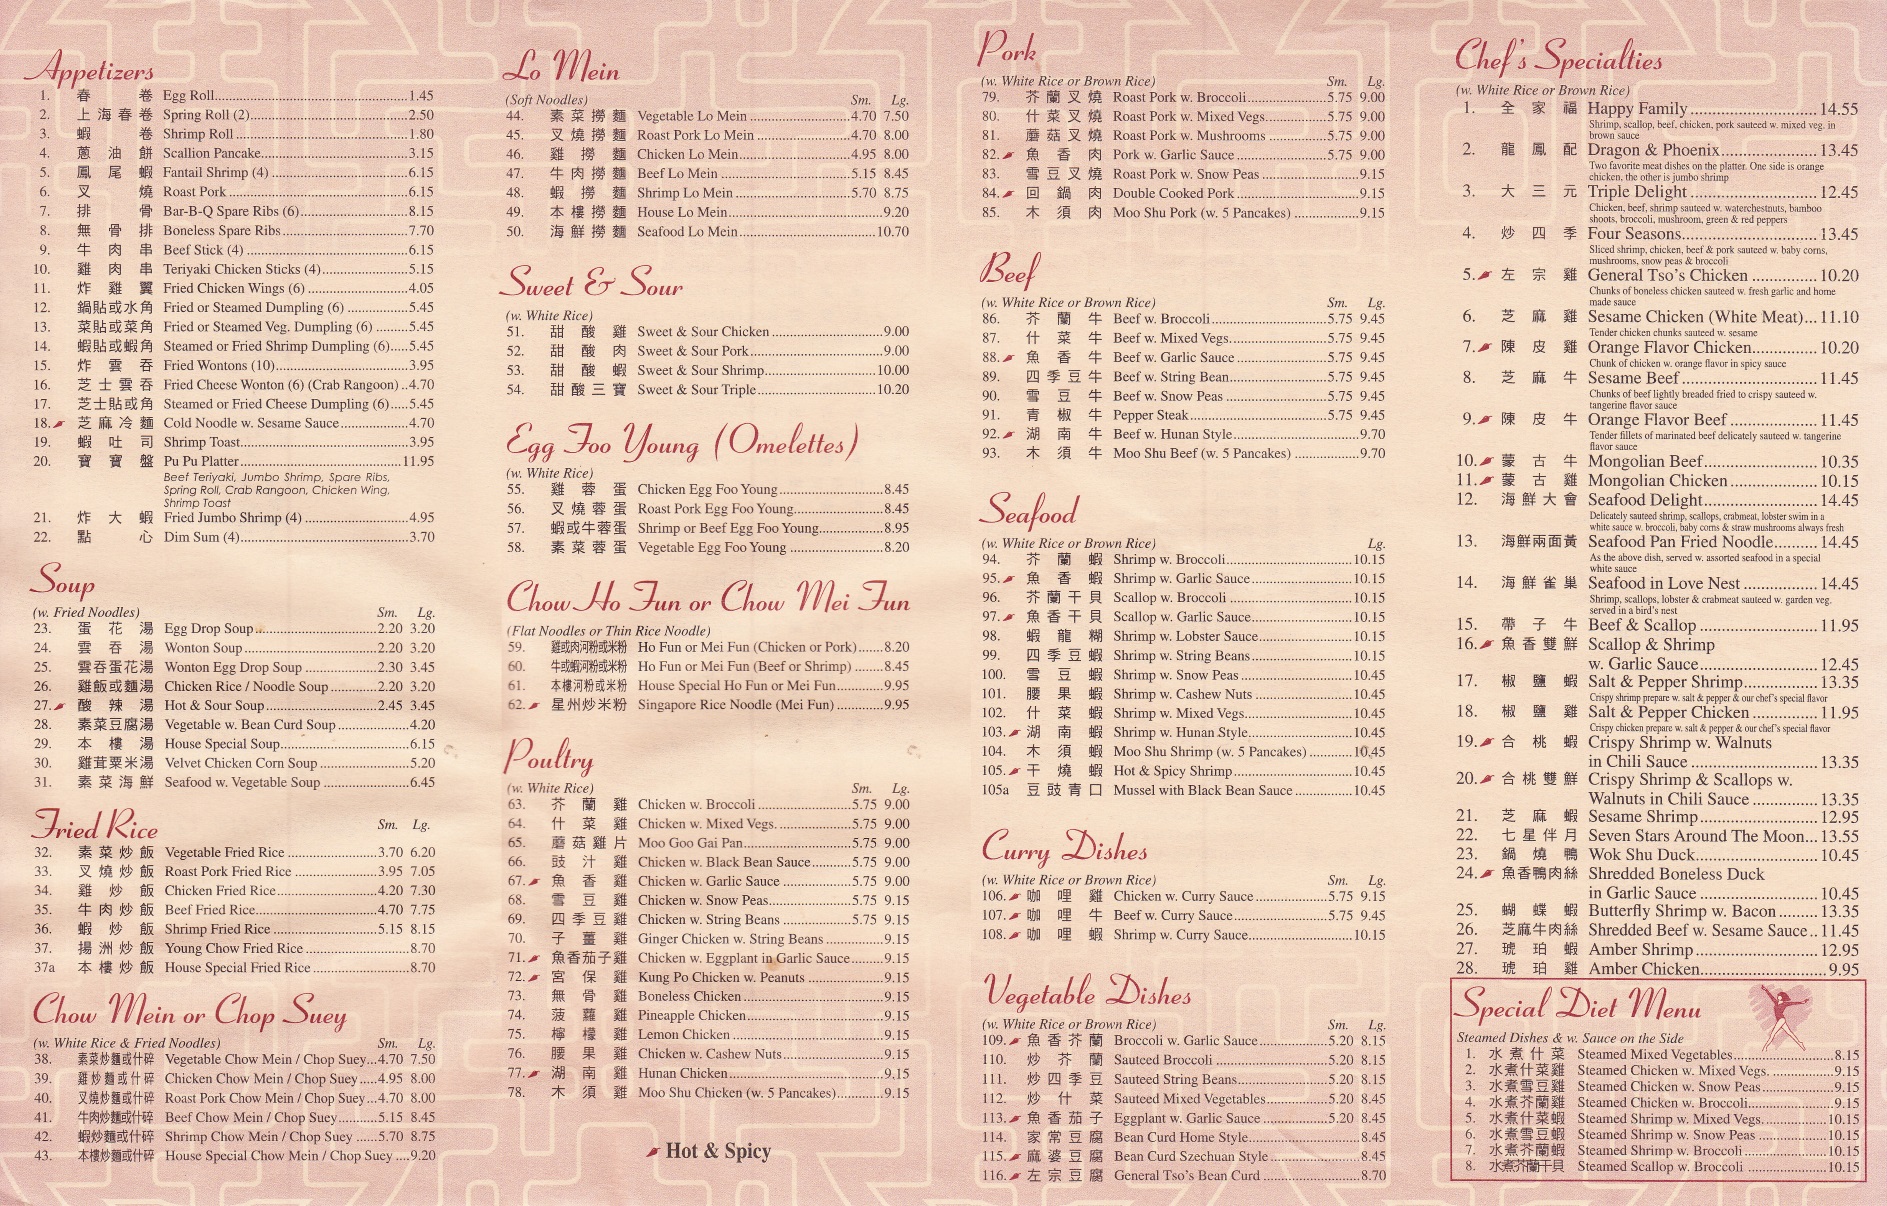 Appetizers
1. 春卷 Egg Roll 1.45
2. 上海春卷 Spring Roll (2) 2.50
3. 蝦卷 Shrimp Roll 1.80
4. 蔥油餅 Scallion Pancake 3.15
5. 鳳尾蝦 Fantail Shrimp (4) 6.15
6. 叉燒 Roast Pork 6.15
7. 排骨 Bar-B-Q Spare Ribs (6) 8.15
8. 無骨排 Boneless Spare Ribs 7.70
9. 牛肉串 Beef Stick (4) 6.15
10. 雞肉串 Teriyaki Chicken Sticks (4) 5.15
11. 炸雞翼 Fried Chicken Wings (6) 4.05
12. 鍋貼或水角 Fried or Steamed Dumpling (6) 5.45
13. 菜貼或菜角 Fried or Steamed Veg. Dumpling (6) 5.45
14. 蝦貼或蝦角 Steamed or Fried Shrimp Dumpling (6) 5.45
15. 炸雲吞 Fried Wontons (10) 3.95
16. 芝士雲吞 Fried Cheese Wonton (6) (Crab Rangoon) 4.70
17. 芝士貼或角 Steamed or Fried Cheese Dumpling (6) 5.45
18. 芝麻冷麵 Cold Noodle w. Sesame Sauce 4.70
19. 蝦吐司 Shrimp Toast 3.95
20. 寶寶盤 Pu Pu Platter 11.95
Beef Teriyaki, Jumbo Shrimp, Spare Ribs,
Spring Roll, Crab Rangoon, Chicken Wing,
Shrimp Toast
21. 炸大蝦 Fried Jumbo Shrimp (4) 4.95
22. 點心 Dim Sum (4) 3.70
Soup
(w. Fried Noodles) Sm. Lg.
23. 蛋花湯 Egg Drop Soup 2.20 3.20
24. 雲吞湯 Wonton Soup 2.20 3.20
25. 雲吞蛋花湯 Wonton Egg Drop Soup 2.30 3.45
26. 雞飯或麵湯 Chicken Rice / Noodle Soup 2.20 3.20
27. 酸辣湯 Hot & Sour Soup 2.45 3.45
28. 素菜豆腐湯 Vegetable w. Bean Curd Soup 4.20
29. 本樓湯 House Special Soup 6.15
30. 雞茸粟米湯 Velvet Chicken Corn Soup 5.20
31. 素菜海鮮 Seafood w. Vegetable Soup 6.45
Fried Rice Sm. Lg.
32. 素菜炒飯 Vegetable Fried Rice 3.70 6.20
33. 叉燒炒飯 Roast Pork Fried Rice 3.95 7.05
34. 雞炒飯 Chicken Fried Rice 4.20 7.30
35. 牛肉炒飯 Beef Fried Rice 4.70 7.75
36. 蝦炒飯 Shrimp Fried Rice 5.15 8.15
37. 揚洲炒飯 Young Chow Fried Rice 8.70
37a 本樓炒飯 House Special Fried Rice 8.70
Chow Mein or Chop Suey
(w. White Rice & Fried Noodles) Sm. Lg.
38. 素菜炒麵或什碎 Vegetable Chow Mein / Chop Suey 4.70 7.50
39. 雞炒麵或什碎 Chicken Chow Mein / Chop Suey 4.95 8.00
40. 叉燒炒麵或什碎 Roast Pork Chow Mein / Chop Suey 4.70 8.00
41. 牛肉炒麵或什碎 Beef Chow Mein / Chop Suey 5.15 8.45
42. 蝦炒麵或什碎 Shrimp Chow Mein / Chop Suey 5.70 8.75
43. 本樓炒麵或什碎 House Special Chow Mein / Chop Suey 9.20
Lo Mein
(Soft Noodles) Sm. Lg.
44. 素菜撈麵 Vegetable Lo Mein 4.70 7.50
45. 叉燒撈麵 Roast Pork Lo Mein 4.70 8.00
46. 雞撈麵 Chicken Lo Mein 4.95 8.00
47. 牛肉撈麵 Beef Lo Mein 5.15 8.45
48. 蝦撈麵 Shrimp Lo Mein 5.70 8.75
49. 本樓撈麵 House Lo Mein 9.20
50. 海鮮撈麵 Seafood Lo Mein 10.70
Sweet & Sour
(w. White Rice)
51. 甜酸雞 Sweet & Sour Chicken 9.00
52. 甜酸肉 Sweet & Sour Pork 9.00
53. 甜酸蝦 Sweet & Sour Shrimp 10.00
54. 甜酸三寶 Sweet & Sour Triple 10.20
Egg Foo Young (Omelettes)
(w. White Rice)
55. 雞蓉蛋 Chicken Egg Foo Young 8.45
56. 叉燒蓉蛋 Roast Pork Egg Foo Young 8.45
57. 蝦或牛蓉蛋 Shrimp or Beef Egg Foo Young 8.95
58. 素菜蓉蛋 Vegetable Egg Foo Young 8.20
Chow Ho Fun or Chow Mei Fun
(Flat Noodles or Thin Rice Noodle)
59. 雞或肉河粉或米粉 Ho Fun or Mei Fun (Chicken or Pork) 8.20
60. 牛或蝦河粉或米粉 Ho Fun or Mei Fun (Beef or Shrimp) 8.45
61. 本樓河粉或米粉 House Special Ho Fun or Mei Fun 9.95
62. 星州炒米粉 Singapore Rice Noodle (Mei Fun) 9.95
Poultry
(w. White Rice) Sm. Lg.
63. 芥蘭雞 Chicken w. Broccoli 5.75 9.00
64. 什菜雞 Chicken w. Mixed Vegs. 5.75 9.00
65. 蘑菇雞片 Moo Goo Gai Pan 5.75 9.00
66. 豉汁雞 Chicken w. Black Bean Sauce 5.75 9.00
67. 魚香雞 Chicken w. Garlic Sauce 5.75 9.00
68. 雪豆雞 Chicken w. Snow Peas 5.75 9.15
69. 四季豆雞 Chicken w. String Beans 5.75 9.15
70. 子薑雞 Ginger Chicken w. String Beans 9.15
71. 魚香茄子雞 Chicken w. Eggplant in Garlic Sauce 9.15
72. 宮保雞 Kung Po Chicken w. Peanuts 9.15
73. 無骨雞 Boneless Chicken 9.15
74. 菠蘿雞 Pineapple Chicken 9.15
75. 檸檬雞 Lemon Chicken 9.15
76. 腰果雞 Chicken w. Cashew Nuts 9.15
77. 湖南雞 Hunan Chicken 9.15
78. 木須雞 Moo Shu Chicken (w. 5 Pancakes) 9.15
Hot & Spicy
Pork
(w. White Rice or Brown Rice) Sm. Lg.
79. 芥蘭叉燒 Roast Pork w. Broccoli 5.75 9.00
80. 什菜叉燒 Roast Pork w. Mixed Vegs. 5.75 9.00
81. 蘑菇叉燒 Roast Pork w. Mushrooms 5.75 9.00
82. 魚香肉 Pork w. Garlic Sauce 5.75 9.00
83. 雪豆叉燒 Roast Pork w. Snow Peas 9.15
84. 回鍋肉 Double Cooked Pork 9.15
85. 木須肉 Moo Shu Pork (w. 5 Pancakes) 9.15
Beef
(w. White Rice or Brown Rice) Sm. Lg.
86. 芥蘭牛 Beef w. Broccoli 5.75 9.45
87. 什菜牛 Beef w. Mixed Vegs. 5.75 9.45
88. 魚香牛 Beef w. Garlic Sauce 5.75 9.45
89. 四季豆牛 Beef w. String Bean 5.75 9.45
90. 雪豆牛 Beef w. Snow Peas 5.75 9.45
91. 青椒牛 Pepper Steak 5.75 9.45
92. 湖南牛 Beef w. Hunan Style 9.70
93. 木須牛 Moo Shu Beef (w. 5 Pancakes) 9.70
Seafood
(w. White Rice or Brown Rice) Lg.
94. 芥蘭蝦 Shrimp w. Broccoli 10.15
95. 魚香蝦 Shrimp w. Garlic Sauce 10.15
96. 芥蘭干貝 Scallop w. Broccoli 10.15
97. 魚香干貝 Scallop w. Garlic Sauce 10.15
98. 蝦龍糊 Shrimp w. Lobster Sauce 10.15
99. 四季豆蝦 Shrimp w. String Beans 10.15
100. 雪豆蝦 Shrimp w. Snow Peas 10.45
101. 腰果蝦 Shrimp w. Cashew Nuts 10.45
102. 什菜蝦 Shrimp w. Mixed Vegs. 10.45
103. 湖南蝦 Shrimp w. Hunan Style 10.45
104. 木須蝦 Moo Shu Shrimp (w. 5 Pancakes) 10.45
105. 干燒蝦 Hot & Spicy Shrimp 10.45
105a 豆豉青口 Mussel with Black Bean Sauce 10.45
Curry Dishes
(w. White Rice or Brown Rice) Sm. Lg.
106. 咖哩雞 Chicken w. Curry Sauce 5.75 9.15
107. 咖哩牛 Beef w. Curry Sauce 5.75 9.45
108. 咖哩蝦 Shrimp w. Curry Sauce 10.15
Vegetable Dishes
(w. White Rice or Brown Rice) Sm. Lg.
109. 魚香芥蘭 Broccoli w. Garlic Sauce 5.20 8.15
110. 炒芥蘭 Sauteed Broccoli 5.20 8.15
111. 炒四季豆 Sauteed String Beans 5.20 8.15
112. 炒什菜 Sauteed Mixed Vegetables 5.20 8.45
113. 魚香茄子 Eggplant w. Garlic Sauce 5.20 8.45
114. 家常豆腐 Bean Curd Home Style 8.45
115. 麻婆豆腐 Bean Curd Szechuan Style 8.45
116. 左宗豆腐 General Tso's Bean Curd 8.70
Chef's Specialties
(w. White Rice or Brown Rice)
1. 全家福 Happy Family 14.55
Shrimp, scallop, beef, chicken, pork sauteed w. mixed veg. in
brown sauce
2. 龍鳳配 Dragon & Phoenix 13.45
Two favorite meat dishes on the platter. One side is orange
chicken, the other is jumbo shrimp
3. 大三元 Triple Delight 12.45
Chicken, beef, shrimp sauteed w. waterchestnuts, bamboo
shoots, broccoli, mushroom, green & red peppers
4. 炒四季 Four Seasons 13.45
Sliced shrimp, chicken, beef & pork sauteed w. baby corns,
mushrooms, snow peas & broccoli
5. 左宗雞 General Tso's Chicken 10.20
Chunks of boneless chicken sauteed w. fresh garlic and home
made sauce
6. 芝麻雞 Sesame Chicken (White Meat) 11.10
Tender chicken chunks sauteed w. sesame
7. 陳皮雞 Orange Flavor Chicken 10.20
Chunk of chicken w. orange flavor in spicy sauce
8. 芝麻牛 Sesame Beef 11.45
Chunks of beef lightly breaded fried to crispy sauteed w.
tangerine flavor sauce
9. 陳皮牛 Orange Flavor Beef 11.45
Tender fillets of marinated beef delicately sauteed w. tangerine
flavor sauce
10. 蒙古牛 Mongolian Beef 10.35
11. 蒙古雞 Mongolian Chicken 10.15
12. 海鮮大會 Seafood Delight 14.45
Delicately sauteed shrimp, scallops, crabmeat, lobster swim in a
white sauce w. broccoli, baby corns & straw mushrooms always fresh
13. 海鮮兩面黃 Seafood Pan Fried Noodle 14.45
As the above dish, served w. assorted seafood in a special
white sauce
14. 海鮮雀巢 Seafood in Love Nest 14.45
Shrimp, scallops, lobster & crabmeat sauteed w. garden veg.
served in a bird's nest
15. 帶子牛 Beef & Scallop 11.95
16. 魚香雙鮮 Scallop & Shrimp
w. Garlic Sauce 12.45
17. 椒鹽蝦 Salt & Pepper Shrimp 13.35
Crispy shrimp prepare w. salt & pepper & our chef's special flavor
18. 椒鹽雞 Salt & Pepper Chicken 11.95
Crispy chicken prepare w. salt & pepper & our chef's special flavor
19. 合桃蝦 Crispy Shrimp w. Walnuts
in Chili Sauce 13.35
20. 合桃雙鮮 Crispy Shrimp & Scallops w.
Walnuts in Chili Sauce 13.35
21. 芝麻蝦 Sesame Shrimp 12.95
22. 七星伴月 Seven Stars Around The Moon 13.55
23. 鍋燒鴨 Wok Shu Duck 10.45
24. 魚香鴨肉絲 Shredded Boneless Duck
in Garlic Sauce 10.45
25. 蝴蝶蝦 Butterfly Shrimp w. Bacon 13.35
26. 芝麻牛肉絲 Shredded Beef w. Sesame Sauce 11.45
27. 琥珀蝦 Amber Shrimp 12.95
28. 琥珀雞 Amber Chicken 9.95
Special Diet Menu
Steamed Dishes & w. Sauce on the Side
1. 水煮什菜 Steamed Mixed Vegetables 8.15
2. 水煮什菜雞 Steamed Chicken w. Mixed Vegs. 9.15
3. 水煮雪豆雞 Steamed Chicken w. Snow Peas 9.15
4. 水煮芥蘭雞 Steamed Chicken w. Broccoli 9.15
5. 水煮什菜蝦 Steamed Shrimp w. Mixed Vegs. 10.15
6. 水煮雪豆蝦 Steamed Shrimp w. Snow Peas 10.15
7. 水煮芥蘭蝦 Steamed Shrimp w. Broccoli 10.15
8. 水煮芥蘭干貝 Steamed Scallop w. Broccoli 10.15